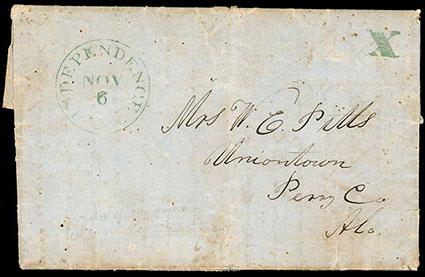 INDEPENDENCE
NOV
6
X
Mrs W. E. Pitts
Uniontown
Perry Co
Ala.